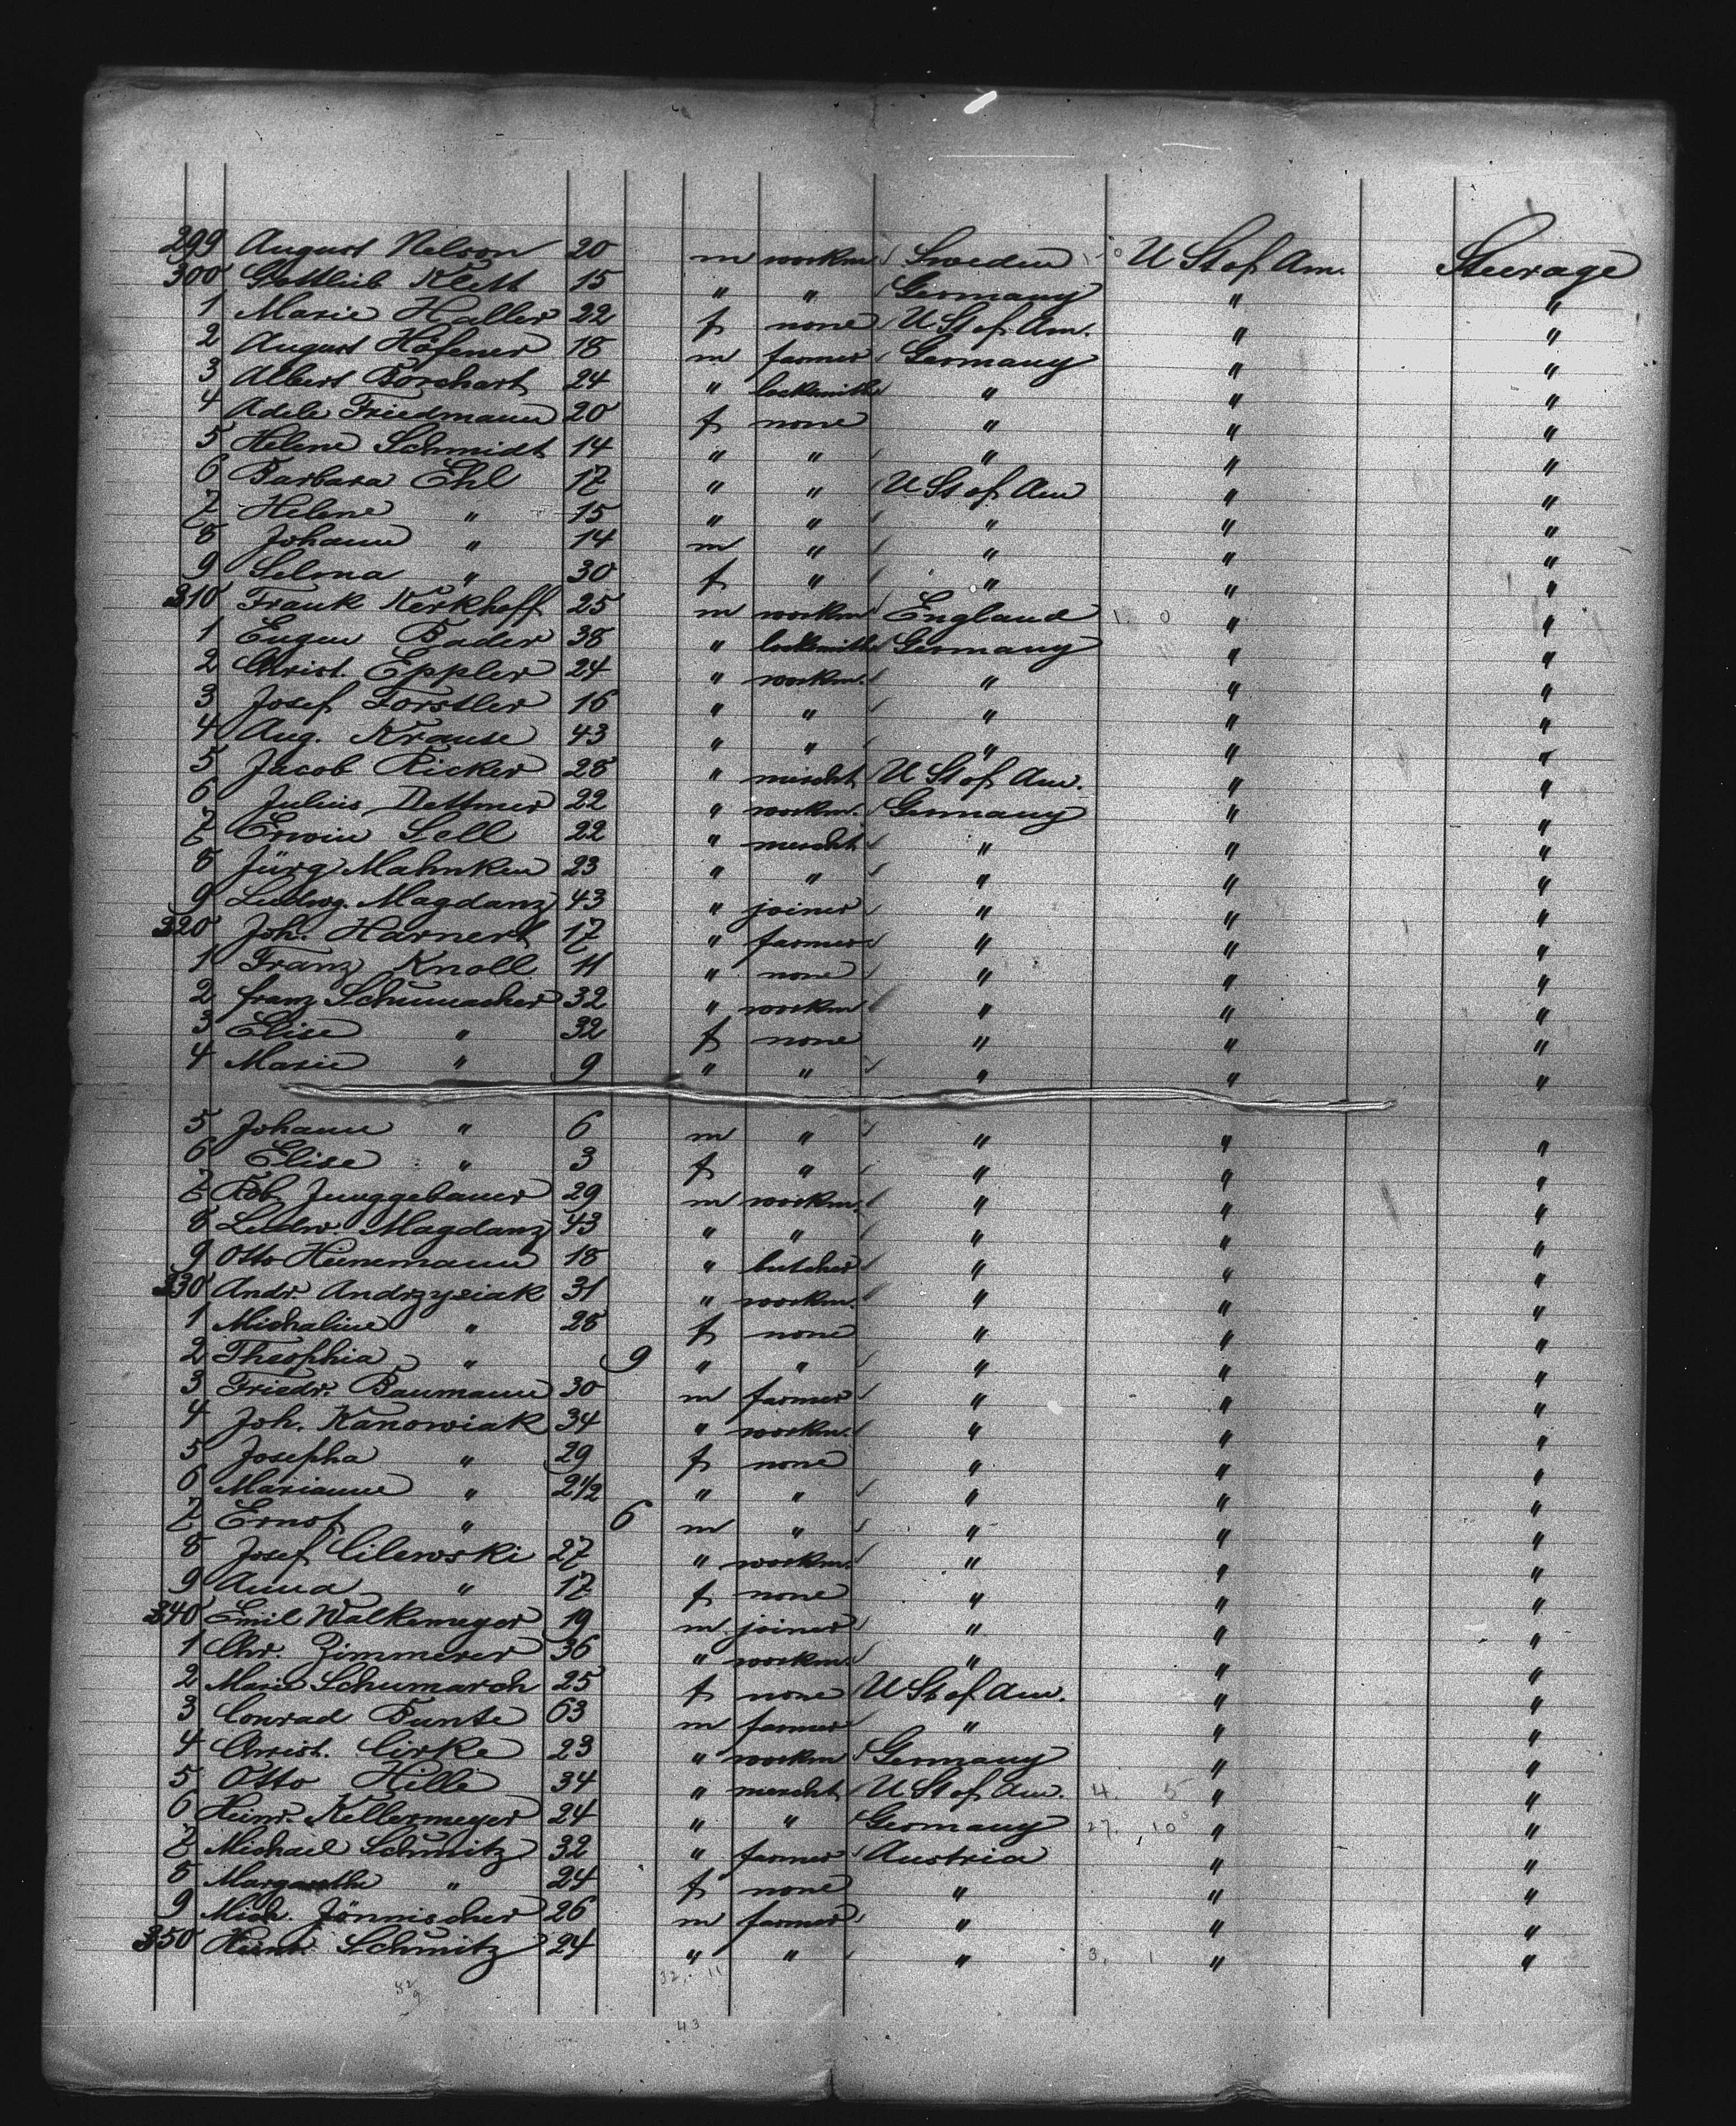 299 August Nelson 20 m workm. Sweden U St of Am. Steerage
300 Gottlieb Klett 15 " " Germany " "
1 Marie Haller 22 f none U St of Am. " "
2 August Höfener 18 m farmer Germany " "
3 Albert Borchart 24 " locksmith " " "
4 Adele Friedmann 20 f none " " "
5 Helene Schmidt 14 " " " " "
6 Barbara Ehl 17 " " U St of Am " "
7 Helene " 15 " " " " "
8 Johann " 14 m " " " "
9 Selma " 30 f " " " "
310 Frank Kerkhoff 25 m workm England " "
1 Eugen Bader 38 " locksmith Germany " "
2 Christ. Eppler 24 " workm. " " "
3 Josef Forstler 16 " " " " "
4 Aug. Krause 43 " " " " "
5 Jacob Ricker 28 " mercht U St of Am. " "
6 Julius Dettmer 22 " workm. Germany " "
7 Erwin Sell 22 " mercht " " "
8 Jürg Mahnken 23 " " " " "
9 Ludwg. Magdanz 43 " joiner " " "
320 Joh. Harnert 17 " farmer " " "
1 Franz Knoll 11 " none " " "
2 franz Schumacher 32 " workm " " "
3 Elise " 32 f none " " "
4 Marie " 9 " " " " "
5 Johann " 6 m " " " "
6 Elise " 3 f " " " "
7 Rob. Junggebauer 29 m workm. " " "
8 Ludw. Magdanz 43 " " " " "
9 Otto Heinemann 18 " butcher " " "
330 Andr. Andrzysiak 31 " workm. " " "
1 Michaline " 28 f none " " "
2 Theophia " 9 " " " " "
3 Friedr. Baumann 30 m farmer " " "
4 Joh. Kanowiak 34 " workm. " " "
5 Josepha " 29 f none " " "
6 Marianne " 2 1/2 " " " " "
7 Ernst " 6 m " " " "
8 Josef Cilewski 27 " workm. " " "
9 Anna " 17 f none " " "
340 Emil Walkemeyer 19 m. joiner " " "
1 Chr. Zimmerer 36 " workm. " " "
2 Marie Schumarch 25 f none U St of Am. " "
3 Conrad Bunte 63 m farmer " " "
4 Christ. Cirke 23 " workm Germany " "
5 Otto Hille 34 " mercht U St of Am. 4. 5 " "
6 Heinr. Kellermeyer 24 " " Germany 27. 10 " "
7 Michael Schmitz 32 " farmer Austria " "
8 Margarethe " 24 f none " " "
9 Mich. Jönnischer 26 m farmer " " "
350 Heinr. Schmitz 24 " " " 3. 1 " "
32. 11
43